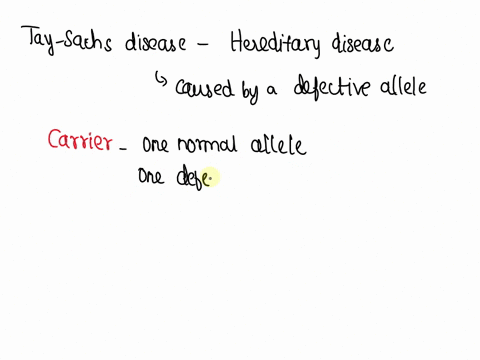 Tay-Sachs disease - Hereditary disease
↳ caused by a defective allele
Carrier - one normal allele
one defe